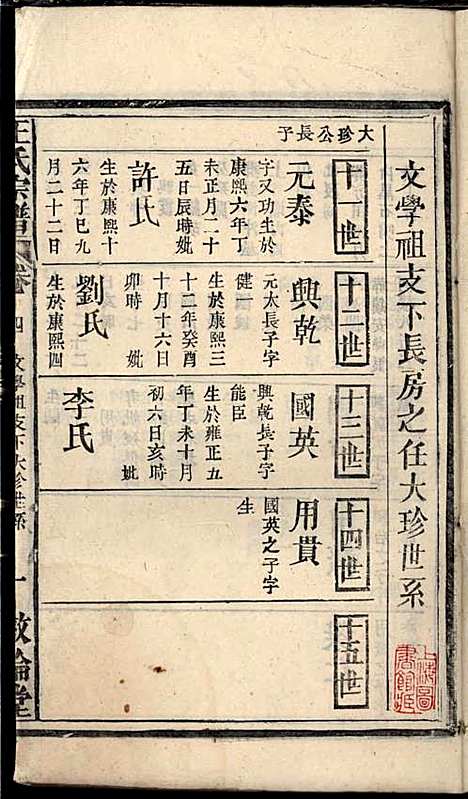 文學祖支下長房之任大珍世系
十一世
大珍公長子
元泰
字又功生於
康熙六年丁
未正月二十
五日辰時妣
許氏
生於康熙十
六年丁巳九
月二十二日
十二世
興乾
元太長子字
健一
生於康熙三
十二年癸酉
十月十六日
卯時 妣
劉氏
生於康熙四
十三世
國英
興乾長子字
能臣
生於雍正五
年丁未十月
初六日亥時
李氏
十四世
用貫
國英之子字
生
十五世
王氏宗譜 卷四 文學祖支下大珍世系 一 敘倫堂
上海圖
書館藏